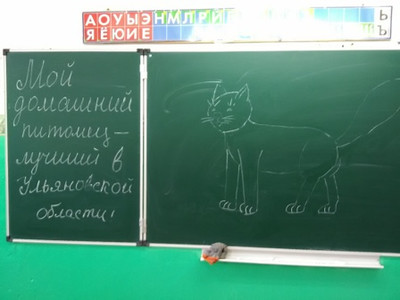 А О У Ы Э Н М Л Р Й Ь
Я Ё Ю И Е Ъ
Мой
домашний
питомец –
лучший в
Ульяновской
области!